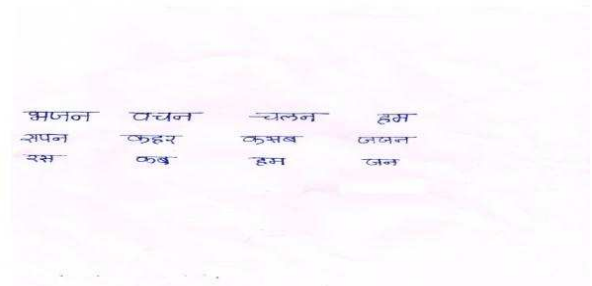 भजन वचन चलन हम
सपन कहर कसब जजन
रस कब हम जन